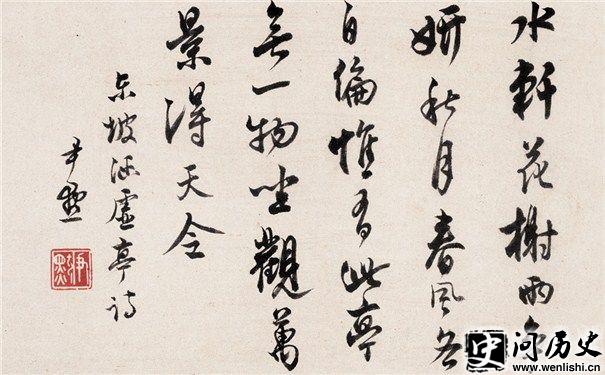 水軒花榭兩爭
妍秋月春風各
自偏惟有此亭
無一物坐觀萬
景得天全
東坡涵虛亭詩
尹默
尹默
史 问历史
www.wenlishi.cn